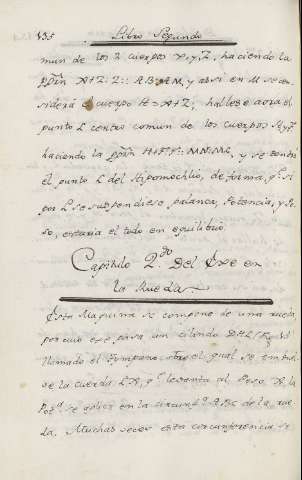 135
Libro Segundo
mun de los 2 cuerpos X, y, Z, haciendo la
X+Z: Z:: R.B: y assi en M se con
siderá el cuerpo H=X+Z, hallese aora el
punto L centro comun de los cuerpos H, y
haciendo la H+F. F:: MN: ML, y se tendrá
el punto L del Hipomochlio, de forma, q.e si
por L se suspendiese palanca, Potencia, y Pe-
so, estaria el todo en equilibrio.
Capitulo 2.do Del Exe en
la Rueda
Esta Maquina se compone de una rueda,
por cuio exe pasa un cilindro DHL
llamado el Tympano, sobre el qual se embuel-
ve la cuerda LX, q.e levanta al Peso X, la
Pot.a se aplica en la circunf.a ABC de la rue-
da. Muchas veces esta circunferencia se